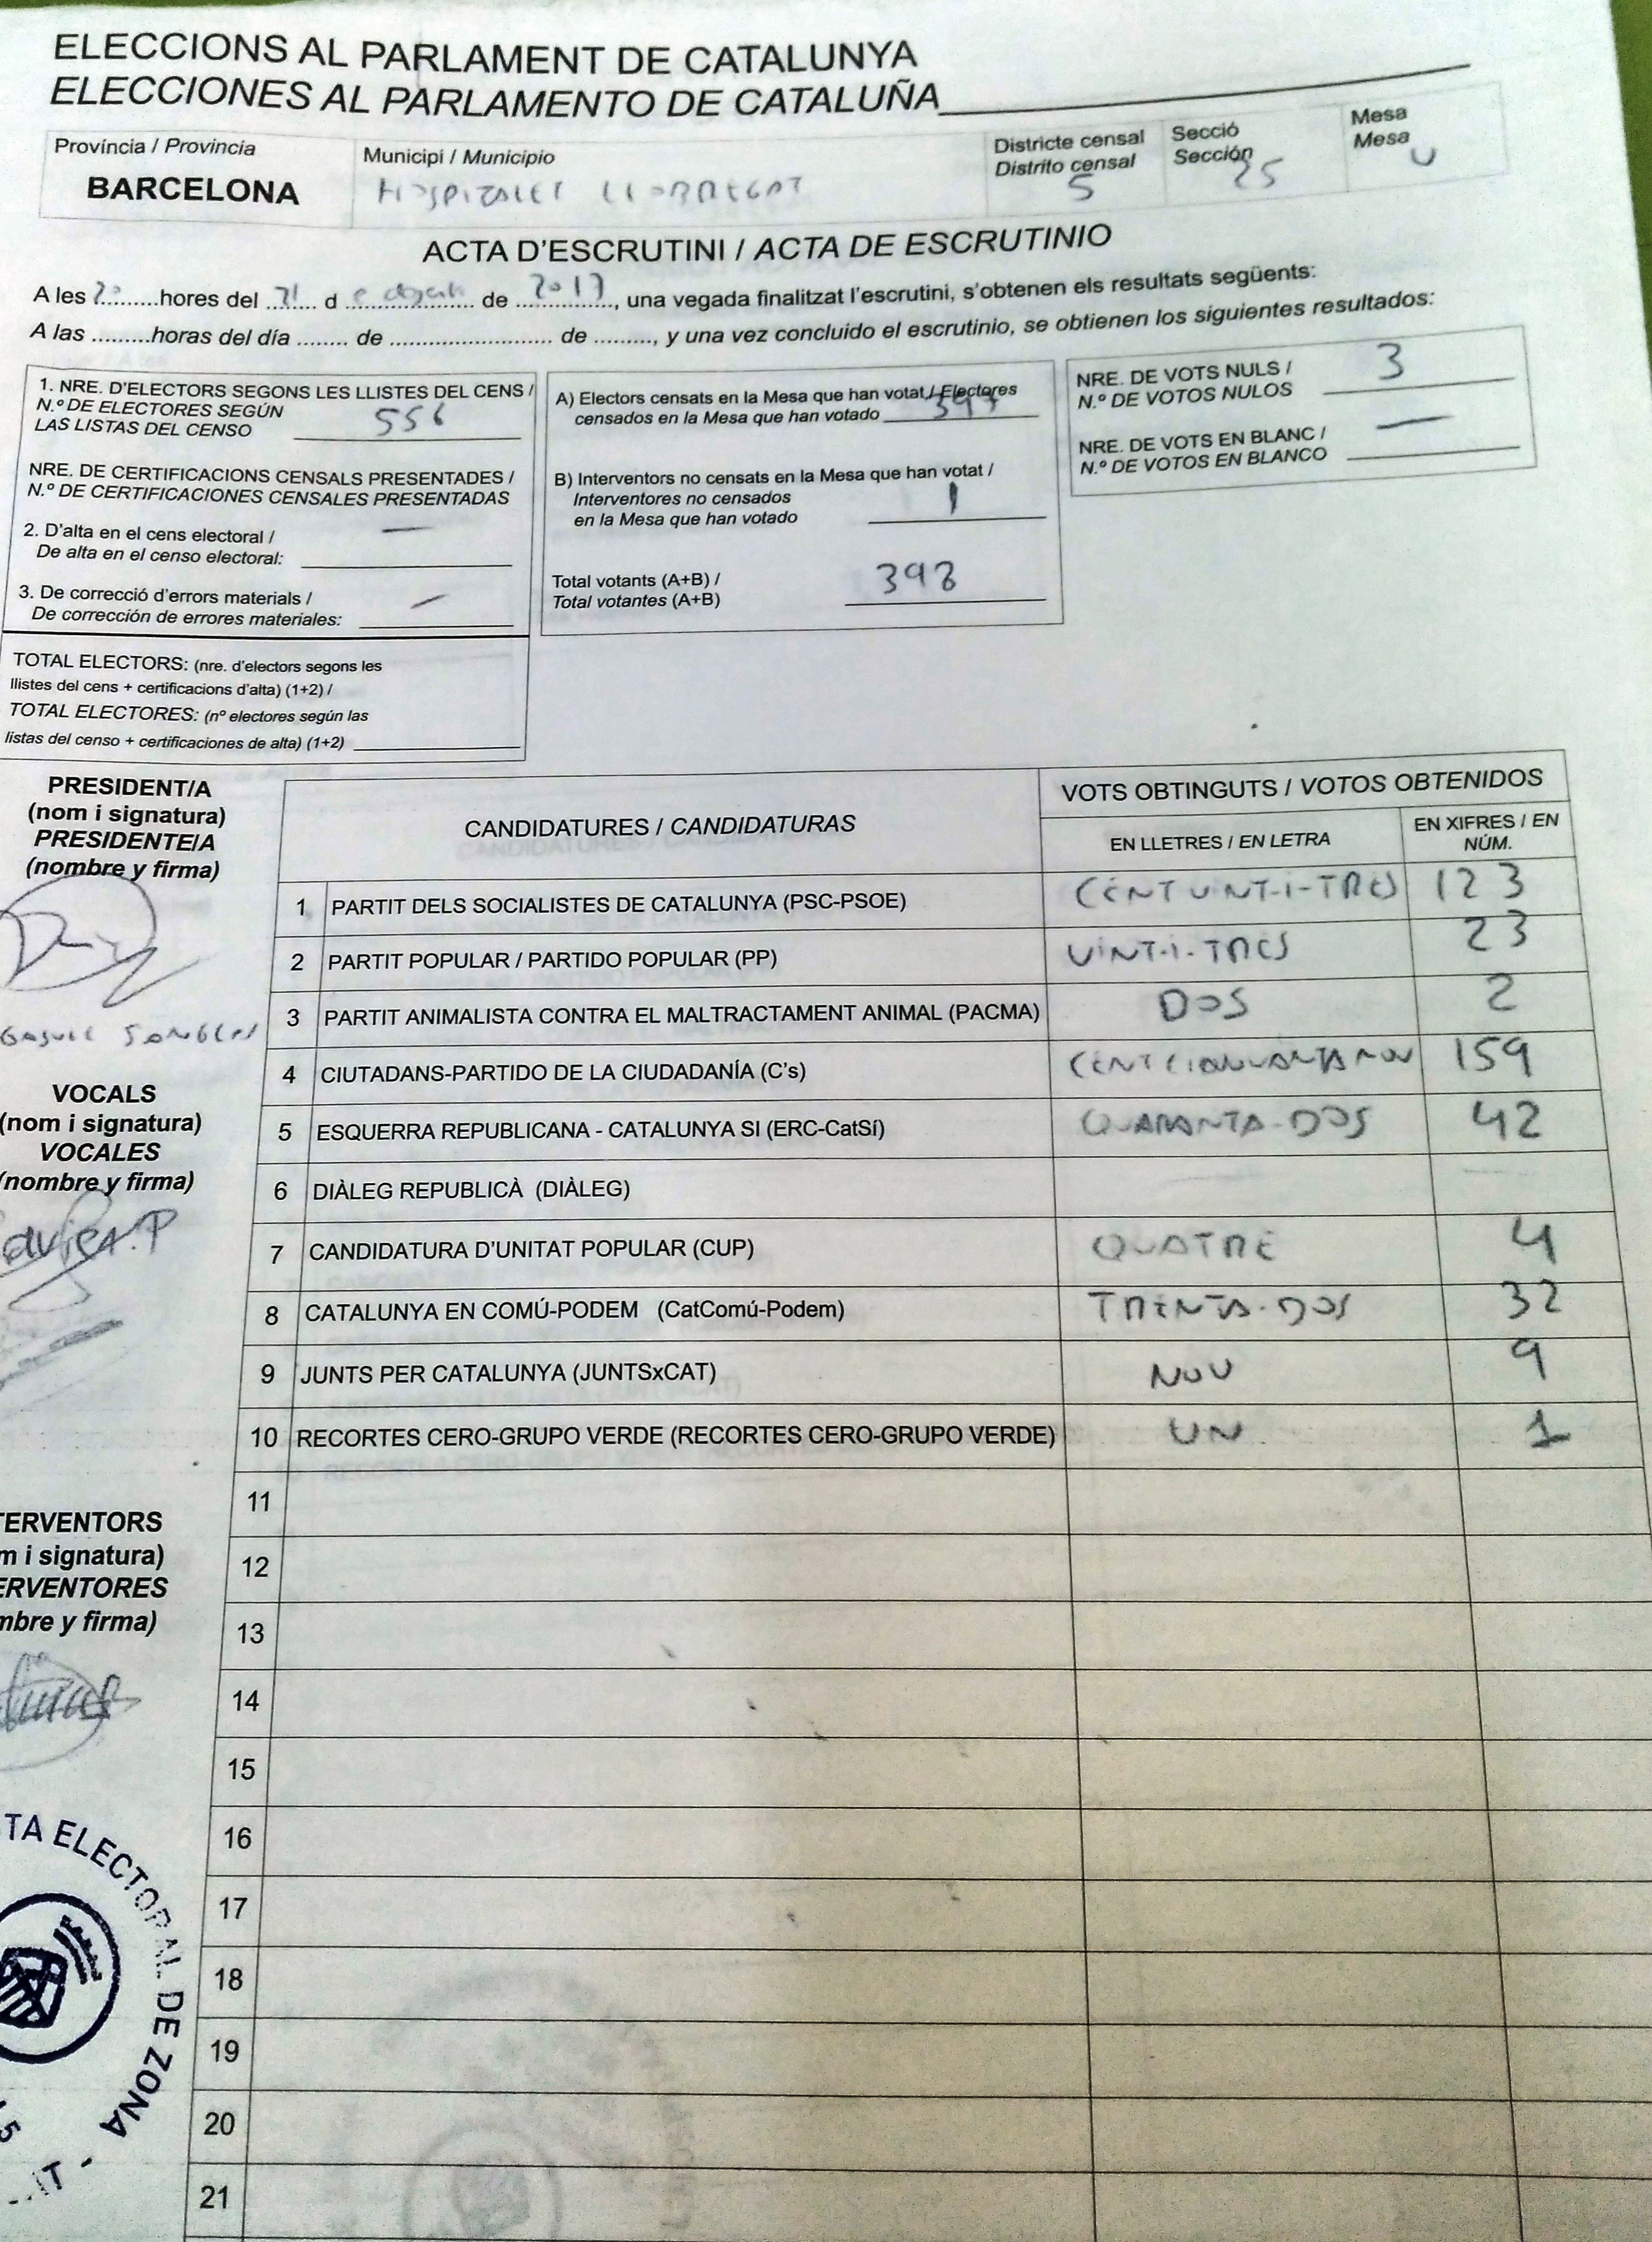 ELECCIONS AL PARLAMENT DE CATALUNYA
ELECCIONES AL PARLAMENTO DE CATALUÑA
Província / Provincia
BARCELONA
Municipi / Municipio
HOSPITALET LLOBREGAT
Districte censal
Distrito censal
5
Secció
Sección
25
Mesa
Mesa
U
ACTA D'ESCRUTINI / ACTA DE ESCRUTINIO
A les 20 hores del 21 d de 2017, una vegada finalitzat l'escrutini, s'obtenen els resultats següents:
A las .........horas del día ........ de ........................... de ........., y una vez concluido el escrutinio, se obtienen los siguientes resultados:
1. NRE. D'ELECTORS SEGONS LES LLISTES DEL CENS /
N.º DE ELECTORES SEGÚN
LAS LISTAS DEL CENSO 556
NRE. DE CERTIFICACIONS CENSALS PRESENTADES /
N.º DE CERTIFICACIONES CENSALES PRESENTADAS
2. D'alta en el cens electoral / —
De alta en el censo electoral:
3. De correcció d'errors materials / —
De corrección de errores materiales:
TOTAL ELECTORS: (nre. d'electors segons les
llistes del cens + certificacions d'alta) (1+2) /
TOTAL ELECTORES: (nº electores según las
listas del censo + certificaciones de alta) (1+2)
A) Electors censats en la Mesa que han votat / Electores
censados en la Mesa que han votado 397
B) Interventors no censats en la Mesa que han votat /
Interventores no censados
en la Mesa que han votado 1
Total votants (A+B) /
Total votantes (A+B) 398
NRE. DE VOTS NULS /
N.º DE VOTOS NULOS 3
NRE. DE VOTS EN BLANC /
N.º DE VOTOS EN BLANCO —
PRESIDENT/A
(nom i signatura)
PRESIDENTE/A
(nombre y firma)
VOCALS
(nom i signatura)
VOCALES
(nombre y firma)
TERVENTORS
m i signatura)
ERVENTORES
mbre y firma)
TA ELECTORAL DE ZONA
CANDIDATURES / CANDIDATURAS
VOTS OBTINGUTS / VOTOS OBTENIDOS
EN LLETRES / EN LETRA
EN XIFRES / EN NÚM.
1 PARTIT DELS SOCIALISTES DE CATALUNYA (PSC-PSOE) CENT VINT-I-TRES 123
2 PARTIT POPULAR / PARTIDO POPULAR (PP) VINT-I-TRES 23
3 PARTIT ANIMALISTA CONTRA EL MALTRACTAMENT ANIMAL (PACMA) DOS 2
4 CIUTADANS-PARTIDO DE LA CIUDADANÍA (C's) CENT 159
5 ESQUERRA REPUBLICANA - CATALUNYA SI (ERC-CatSí) QUARANTA-DOS 42
6 DIÀLEG REPUBLICÀ (DIÀLEG)
7 CANDIDATURA D'UNITAT POPULAR (CUP) QUATRE 4
8 CATALUNYA EN COMÚ-PODEM (CatComú-Podem) TRENTA-DOS 32
9 JUNTS PER CATALUNYA (JUNTSxCAT) NOU 9
10 RECORTES CERO-GRUPO VERDE (RECORTES CERO-GRUPO VERDE) UN 1
11
12
13
14
15
16
17
18
19
20
21